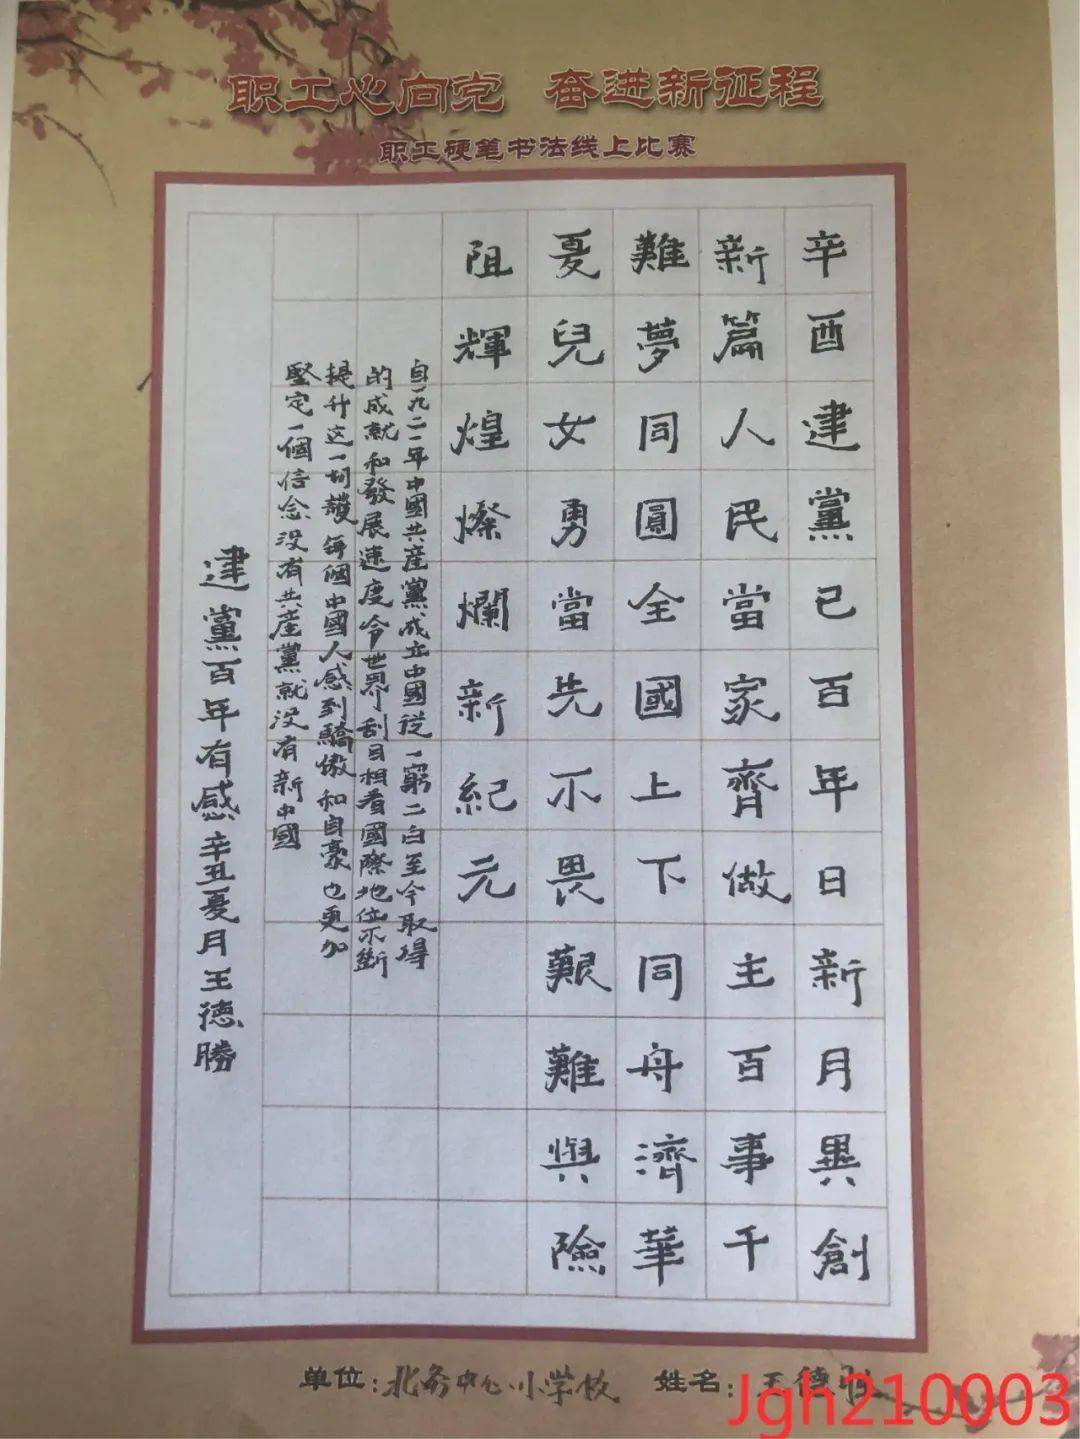 职工心向党 奋进新征程
职工硬笔书法线上比赛
辛酉建黨已百年日新月異創
新篇人民當家齊做主百事千
難夢同圓全國上下同舟濟華
夏兒女勇當先不畏艱難與險
阻輝煌燦爛新紀元
自一九二一年中國共産黨成立中國從一窮二白至今取得
的成就和發展速度令世界刮目相看國際地位不斷
提升这一切讓每個中國人感到驕傲和自豪也更加
堅定一個信念没有共産黨就没有新中國
建黨百年有感辛丑夏月王德勝
单位:北务中心小学校 姓名:王德
Jgh210003